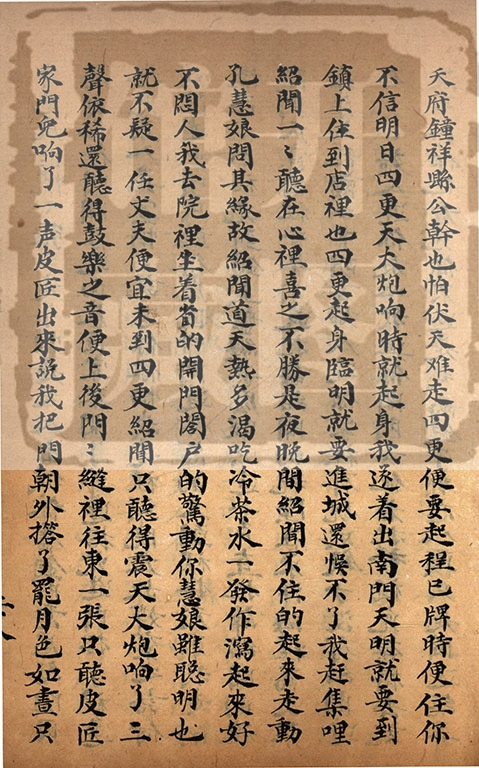 天府鐘祥縣公幹也怕伏天难走四更便要起程巳牌時便住你
不信明日四更天大炮响時就起身我送着出南門天明就要到
鎮上住到店裡也四更起身臨明就要進城還悞不了我赶集哩
紹聞一〻聽在心裡喜之不勝是夜晚間紹聞不住的起來走動
孔慧娘問其緣故紹聞道天熱多渴吃冷茶水一發作瀉起來好
不悶人我去院裡坐着省的開門閤户的驚動你慧娘雖聪明也
就不疑一任丈夫便宜未到四更紹聞只聽得震天大炮响了三
聲依稀還聽得鼓樂之音便上後門〻縫裡往東一張只聽皮匠
家門兒响了一声皮匠出來說我把門朝外搭了罷月色如晝只